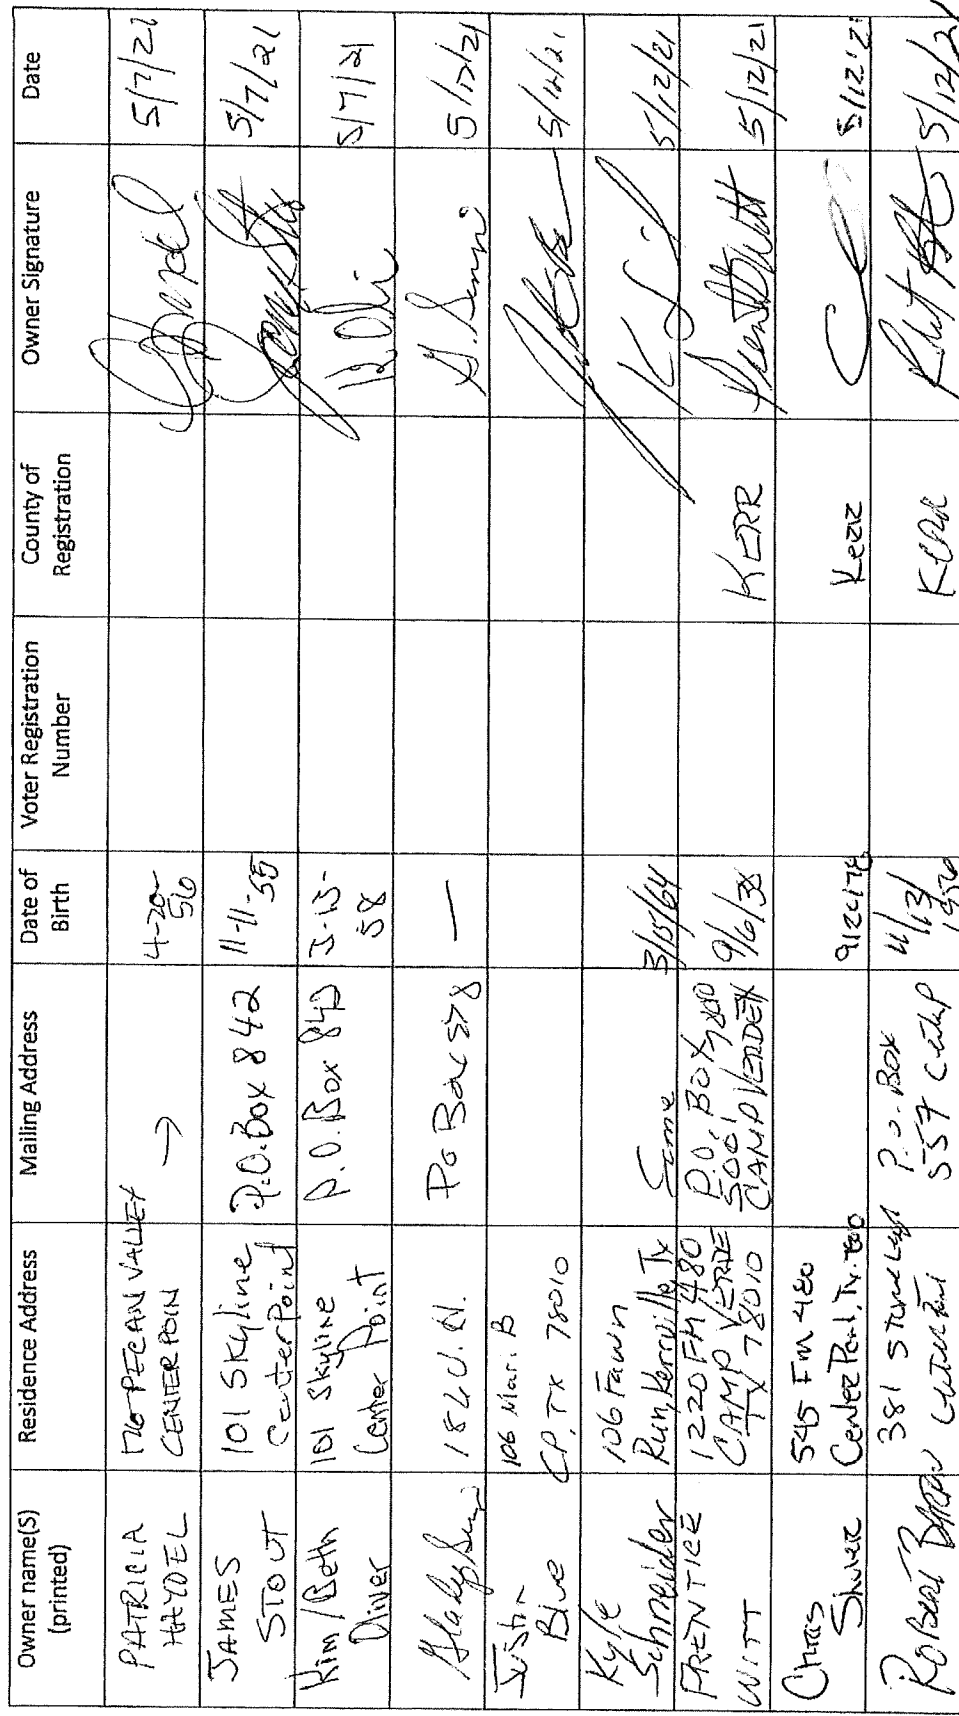 Owner name(S) (printed) Residence Address Mailing Address Date of Birth Voter Registration Number County of Registration Owner Signature Date
PATRICIA HAYDEL PECAN VALLEY CENTERPOIN → 4-20-56 5/7/21
JAMES STOUT 101 Skyline CenterPoint P.O. Box 842 11-11-55 5/7/21
Kim/Beth Oliver 101 Skyline Center Point P.O. Box 842 58 5/7/21
184 U.N. Po Box 578 — 5/12/21
Justin Blue 106 Mari. B CP, TX 78010 5/12/21
Kyle Schneider 106 Fawn Run, Kerrville, Tx Same 3/15/64 5/12/21
PRENTICE WITT 1220 FM 480 CAMP VERDE TX 78010 P.O. BOX CAMP VERDE TX 9/6/38 KERR Prentice Witt 5/12/21
Chris 545 Fm 480 Center Point, Tx. Kerr 5/12/21
ROBERT 381 P.O. Box 557 11/13/ Kerr 5/12/21